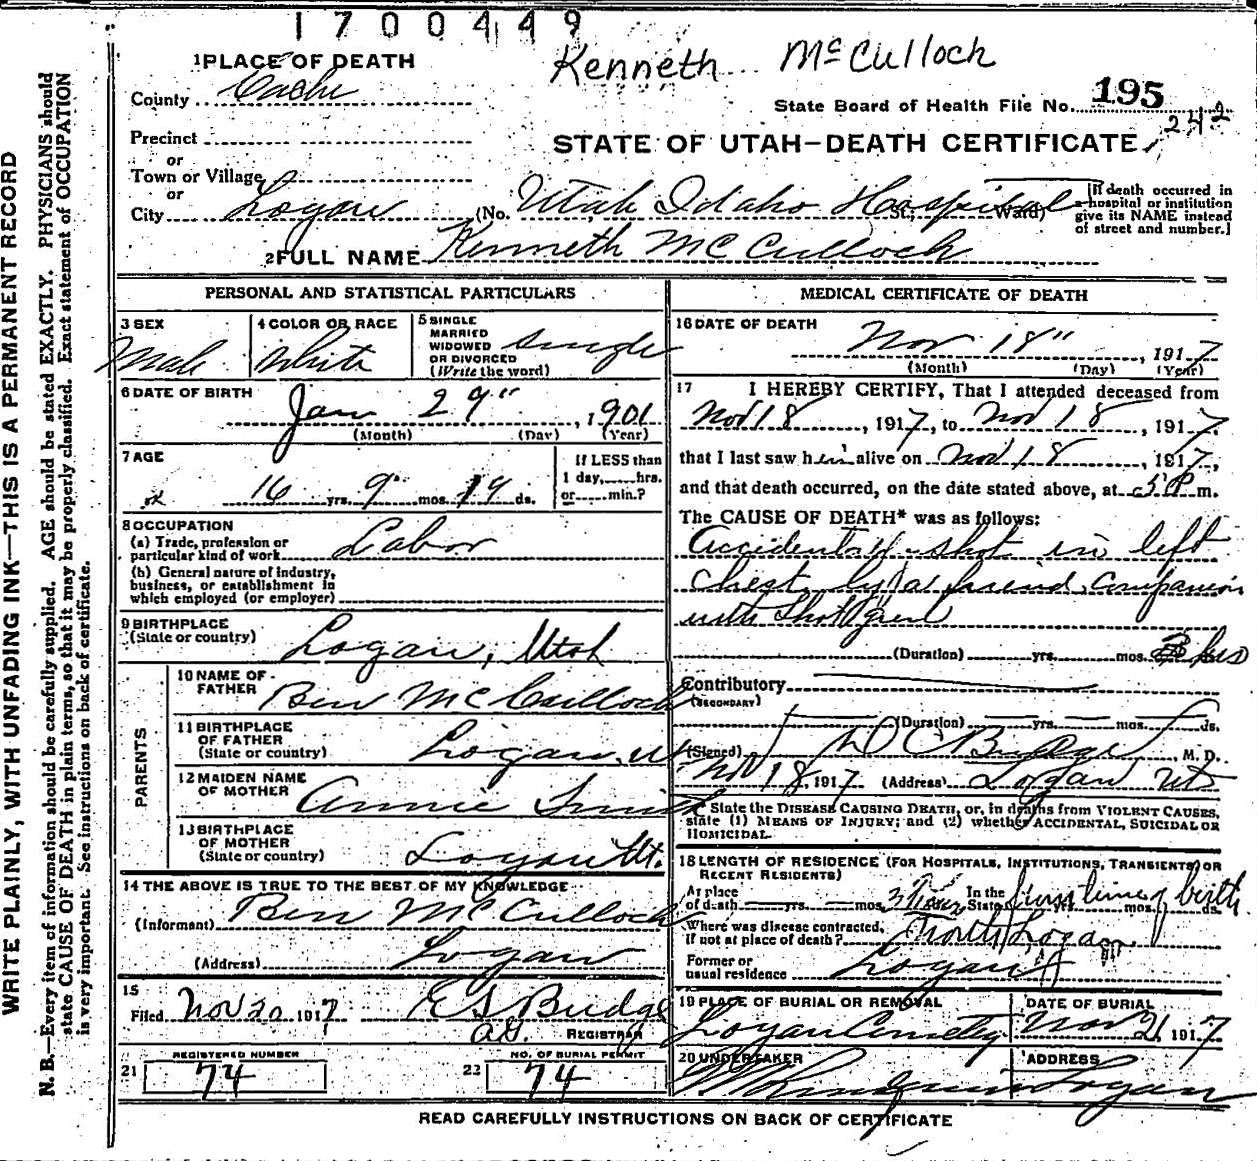 1700449
Kenneth McCulloch
1 PLACE OF DEATH
County Cache
State Board of Health File No. 195
242
Precinct
STATE OF UTAH—DEATH CERTIFICATE
or
Town or Village
or
City Logan (No. Utah Idaho Hospital St.; Ward)
[If death occurred in
a hospital or institution
give its NAME instead
of street and number.]
2 FULL NAME Kenneth McCulloch
PERSONAL AND STATISTICAL PARTICULARS
3 SEX
Male
4 COLOR OR RACE
White
5 SINGLE
MARRIED
WIDOWED
OR DIVORCED
(Write the word)
Single
6 DATE OF BIRTH
Jan 29", 1901
(Month) (Day) (Year)
7 AGE
16 yrs. 9 mos. 19 ds.
If LESS than
1 day, hrs.
or min.?
8 OCCUPATION
(a) Trade, profession or
particular kind of work Labor
(b) General nature of industry,
business, or establishment in
which employed (or employer)
9 BIRTHPLACE
(State or country) Logan, Utah
PARENTS
10 NAME OF
FATHER Ben McCulloch
11 BIRTHPLACE
OF FATHER
(State or country) Logan, Ut
12 MAIDEN NAME
OF MOTHER Annie Smith
13 BIRTHPLACE
OF MOTHER
(State or country) Logan Ut.
14 THE ABOVE IS TRUE TO THE BEST OF MY KNOWLEDGE
(Informant) Ben McCulloch
(Address) Logan
15
Filed Nov 20 1917 E S Budge
REGISTRAR
REGISTERED NUMBER
21 74
NO. OF BURIAL PERMIT
22 74
MEDICAL CERTIFICATE OF DEATH
16 DATE OF DEATH
Nov 18", 1917
(Month) (Day) (Year)
17 I HEREBY CERTIFY, That I attended deceased from
Nov 18, 1917, to Nov 18, 1917,
that I last saw him alive on Nov 18, 1917,
and that death occurred, on the date stated above, at 5 P m.
The CAUSE OF DEATH* was as follows:
Accidentally shot in left
chest by a friend companion
with Shot gun
(Duration) yrs. mos. 3 hrs
Contributory
(SECONDARY)
(Duration) yrs. mos. ds.
(Signed) D C Budge, M. D.
Nov 18, 1917 (Address) Logan Ut
* State the DISEASE CAUSING DEATH, or, in deaths from VIOLENT CAUSES,
state (1) MEANS OF INJURY; and (2) whether ACCIDENTAL, SUICIDAL OR
HOMICIDAL.
18 LENGTH OF RESIDENCE (FOR HOSPITALS, INSTITUTIONS, TRANSIENTS OR
RECENT RESIDENTS)
At place
of death yrs. mos. In the
State since time of birth
Where was disease contracted,
If not at place of death? North Logan
Former or
usual residence Logan
19 PLACE OF BURIAL OR REMOVAL
Logan Cemetery
DATE OF BURIAL
Nov 21 1917
20 UNDERTAKER
ADDRESS
Logan
READ CAREFULLY INSTRUCTIONS ON BACK OF CERTIFICATE
WRITE PLAINLY, WITH UNFADING INK—THIS IS A PERMANENT RECORD
N. B.—Every item of information should be carefully supplied. AGE should be stated EXACTLY. PHYSICIANS should
state CAUSE OF DEATH in plain terms, so that it may be properly classified. Exact statement of OCCUPATION
is very important. See instructions on back of certificate.